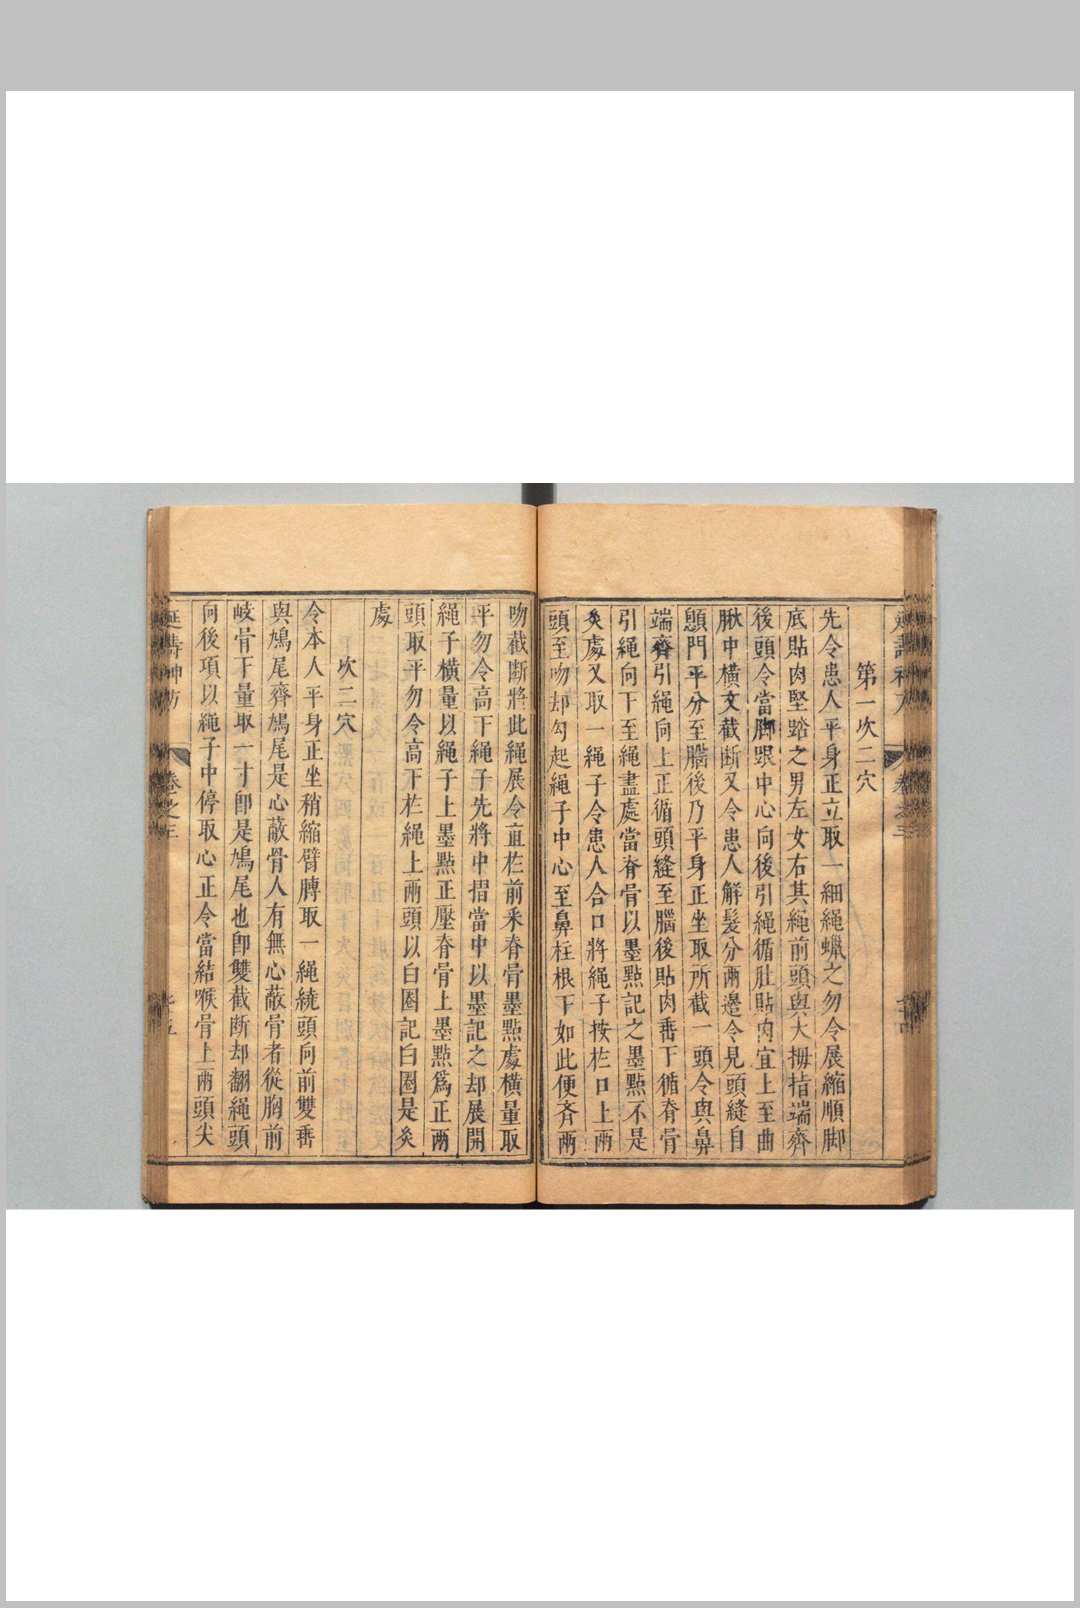 第一次二穴
先令患人平身正立取一細繩蠟之勿令展縮順脚
底貼肉堅踏之男左女右其繩前頭與大拇指端齊
後頭令當脚跟中心向後引繩循肚貼肉宜上至曲
䐐中橫文截斷又令患人解髮分兩邊令見頭縫自
顖門平分至腦後乃平身正坐取所截一頭令與鼻
端齊引繩向上正循頭縫至腦後貼肉垂下循脊骨
引繩向下至繩盡處當脊骨以墨點記之墨點不是
灸處又取一繩子令患人合口將繩子按於口上兩
頭至吻却勾起繩子中心至鼻柱根下如此便齊兩
吻截斷將此繩展令直於前來脊骨墨點處橫量取
平勿令高下繩子先將中摺當中以墨記之却展開
繩子橫量以繩子上墨點正壓脊骨上墨點爲正兩
頭取平勿令高下於繩上兩頭以白圈記白圈是灸
處
次二穴
令本人平身正坐稍縮臂膊取一繩繞頭向前雙垂
與鳩尾齊鳩尾是心蔽骨人有無心蔽骨者從胸前
岐骨下量取一寸卽是鳩尾也卽雙截斷却翻繩頭
向後項以繩子中停取心正令當結喉骨上兩頭尖
延壽神方
卷之三
七五